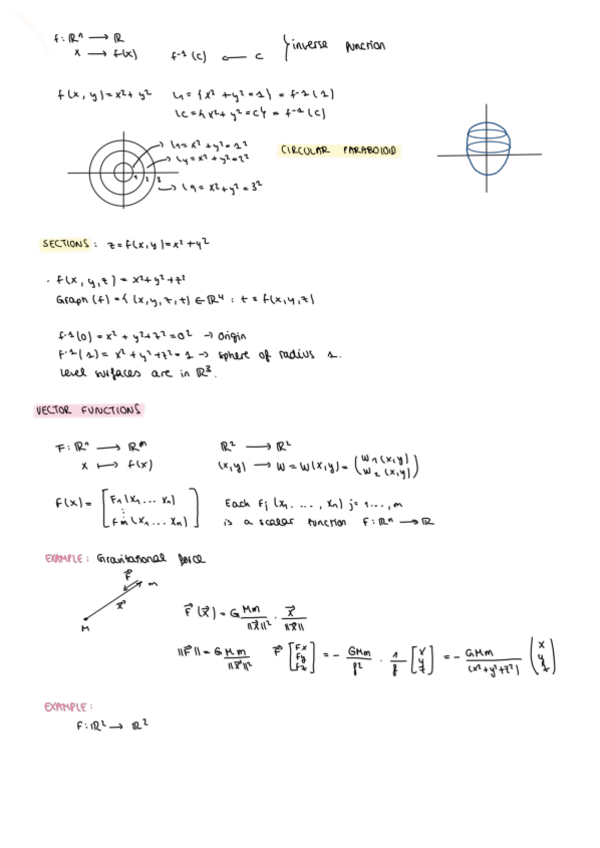 f: ℝⁿ → ℝ
x → f(x) f⁻¹(c) ← c } inverse function
f(x, y) = x² + y² L₁ = {x² + y² = 1} = f⁻¹(1)
Lc = {x² + y² = c} = f⁻¹(c)
L₁ = x² + y² = 1²
L₄ = x² + y² = 2²
CIRCULAR PARABOLOID
1 2 3
L₉ = x² + y² = 3²
SECTIONS: z = f(x,y) = x² + y²
· f(x, y, z) = x² + y² + z²
Graph(f) = { (x, y, z, t) ∈ ℝ⁴ : t = f(x, y, z)
f⁻¹(0) = x² + y² + z² = 0² → origin
f⁻¹(1) = x² + y² + z² = 1 → sphere of radius 1.
Level surfaces are in ℝ³.
VECTOR FUNCTIONS
F: ℝⁿ → ℝᵐ ℝ² → ℝ²
x ↦ f(x) (x,y) → W = W(x,y) = (W₁(x,y) W₂(x,y))
F(x) = [F₁(x₁ ... xₙ) ⋮ Fm(x₁ ... xₙ)] Each Fj (x₁, ..., xₙ) j = 1..., m
is a scalar function F: ℝⁿ → ℝ
EXAMPLE: Gravitational force
F⃗ m
x⃗
M
F⃗(x⃗) = G Mm/||x⃗||² · x⃗/||x⃗||
||F⃗|| = G Mm/||x⃗||² F⃗ [Fx Fy Fz] = - GMm/ρ² · 1/ρ [x y z] = - GMm/(x²+y²+z²) (x y z)
EXAMPLE:
f: ℝ² → ℝ²